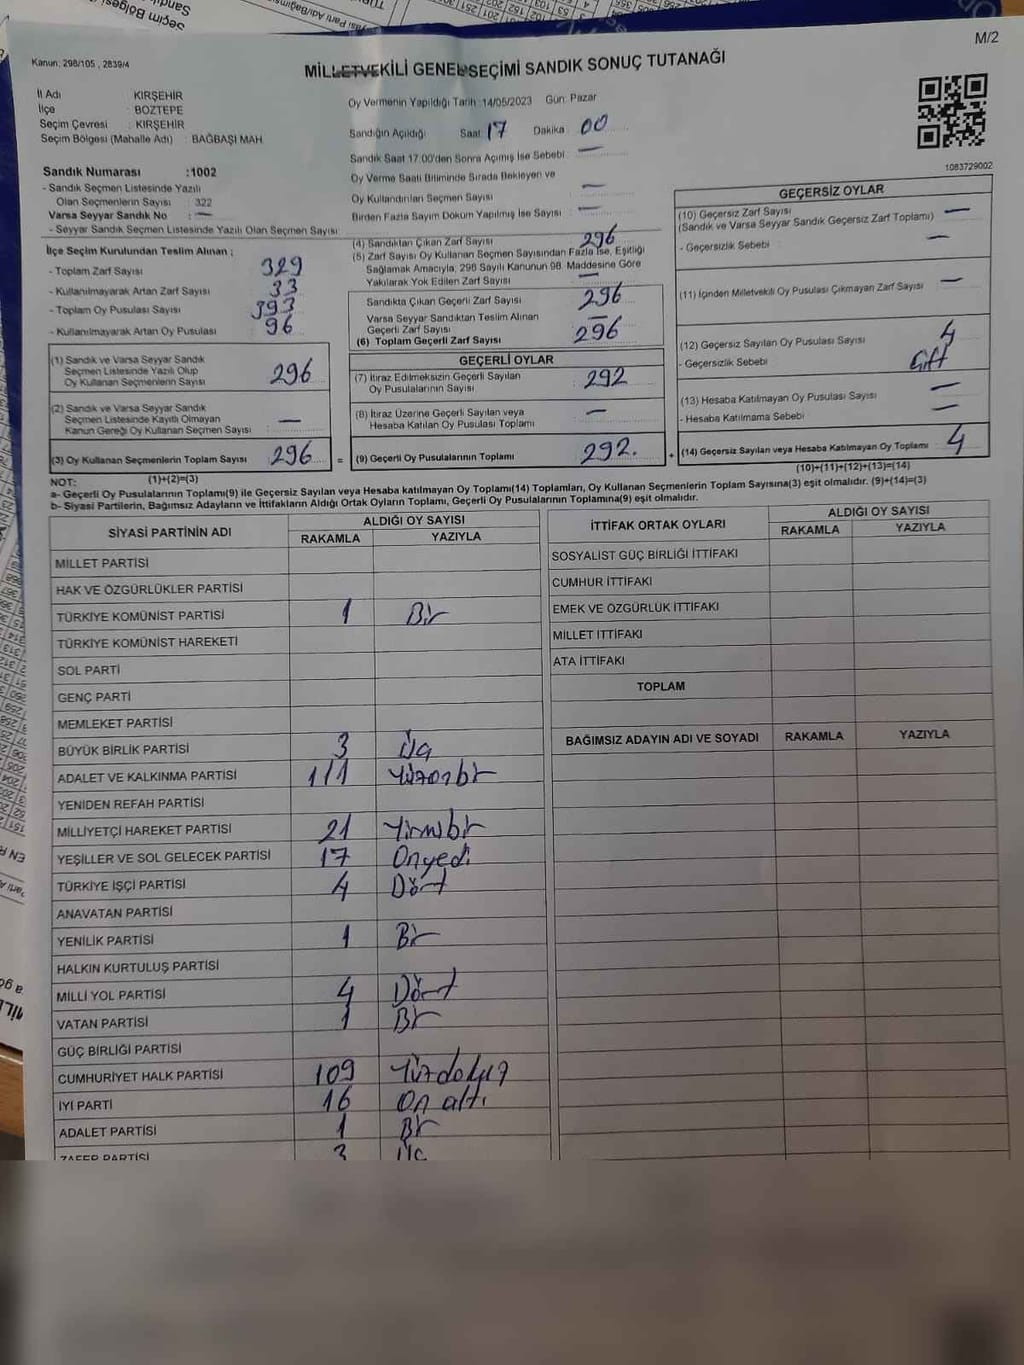 M/2
Kanun: 298/105 , 2839/4
MİLLETVEKİLİ GENEL SEÇİMİ SANDIK SONUÇ TUTANAĞI
İl Adı KIRŞEHİR
İlçe : BOZTEPE
Seçim Çevresi : KIRŞEHİR
Seçim Bölgesi (Mahalle Adı) : BAĞBAŞI MAH
Oy Vermenin Yapıldığı Tarih :14/05/2023 Gün: Pazar
Sandığın Açıldığı Saat 17 Dakika : 00
Sandık Saat 17:00'den Sonra Açılmış İse Sebebi : —
Oy Verme Saati Bitiminde Sırada Bekleyen ve
Oy Kullandırılan Seçmen Sayısı —
Birden Fazla Sayım Döküm Yapılmış İse Sayısı : —
1083729002
Sandık Numarası :1002
- Sandık Seçmen Listesinde Yazılı
Olan Seçmenlerin Sayısı : 322
Varsa Seyyar Sandık No : —
- Seyyar Sandık Seçmen Listesinde Yazılı Olan Seçmen Sayısı
İlçe Seçim Kurulundan Teslim Alınan ;
- Toplam Zarf Sayısı : 329
- Kullanılmayarak Artan Zarf Sayısı : 33
- Toplam Oy Pusulası Sayısı : 393
- Kullanılmayarak Artan Oy Pusulası : 96
(1) Sandık ve Varsa Seyyar Sandık
Seçmen Listesinde Yazılı Olup
Oy Kullanan Seçmenlerin Sayısı : 296
(2) Sandık ve Varsa Seyyar Sandık
Seçmen Listesinde Kayıtlı Olmayan
Kanun Gereği Oy Kullanan Seçmen Sayısı : —
(3) Oy Kullanan Seçmenlerin Toplam Sayısı : 296
(4) Sandıktan Çıkan Zarf Sayısı : 296
(5) Zarf Sayısı Oy Kullanan Seçmen Sayısından Fazla İse, Eşitliği
Sağlamak Amacıyla, 298 Sayılı Kanunun 98. Maddesine Göre
Yakılarak Yok Edilen Zarf Sayısı : —
Sandıkta Çıkan Geçerli Zarf Sayısı : 296
Varsa Seyyar Sandıktan Teslim Alınan
Geçerli Zarf Sayısı : —
(6) Toplam Geçerli Zarf Sayısı : 296
GEÇERLİ OYLAR
(7) İtiraz Edilmeksizin Geçerli Sayılan
Oy Pusulalarının Sayısı : 292
(8) İtiraz Üzerine Geçerli Sayılan veya
Hesaba Katılan Oy Pusulası Toplamı : —
= (9) Geçerli Oy Pusulalarının Toplamı : 292.
GEÇERSİZ OYLAR
(10) Geçersiz Zarf Sayısı : —
(Sandık ve Varsa Seyyar Sandık Geçersiz Zarf Toplamı)
- Geçersizlik Sebebi : —
(11) İçinden Milletvekili Oy Pusulası Çıkmayan Zarf Sayısı : —
(12) Geçersiz Sayılan Oy Pusulası Sayısı : 4
- Geçersizlik Sebebi : Çift
(13) Hesaba Katılmayan Oy Pusulası Sayısı : —
- Hesaba Katılmama Sebebi : —
+ (14) Geçersiz Sayılan veya Hesaba Katılmayan Oy Toplamı : 4
(1)+(2)=(3)
(10)+(11)+(12)+(13)=(14)
NOT:
a- Geçerli Oy Pusulalarının Toplamı(9) ile Geçersiz Sayılan veya Hesaba katılmayan Oy Toplamı(14) Toplamları, Oy Kullanan Seçmenlerin Toplam Sayısına(3) eşit olmalıdır. (9)+(14)=(3)
b- Siyasi Partilerin, Bağımsız Adayların ve İttifakların Aldığı Ortak Oyların Toplamı, Geçerli Oy Pusulalarının Toplamına(9) eşit olmalıdır.
SİYASİ PARTİNİN ADI ALDIĞI OY SAYISI
RAKAMLA YAZIYLA
MİLLET PARTİSİ
HAK VE ÖZGÜRLÜKLER PARTİSİ
TÜRKİYE KOMÜNİST PARTİSİ 1 Bir
TÜRKİYE KOMÜNİST HAREKETİ
SOL PARTİ
GENÇ PARTİ
MEMLEKET PARTİSİ
BÜYÜK BİRLİK PARTİSİ 3 Üç
ADALET VE KALKINMA PARTİSİ 111 Yüzonbir
YENİDEN REFAH PARTİSİ
MİLLİYETÇİ HAREKET PARTİSİ 21 Yirmibir
YEŞİLLER VE SOL GELECEK PARTİSİ 17 Onyedi
TÜRKİYE İŞÇİ PARTİSİ 4 Dört
ANAVATAN PARTİSİ
YENİLİK PARTİSİ 1 Bir
HALKIN KURTULUŞ PARTİSİ
MİLLİ YOL PARTİSİ 4 Dört
VATAN PARTİSİ 1 Bir
GÜÇ BİRLİĞİ PARTİSİ
CUMHURİYET HALK PARTİSİ 109 Yüzdokuz
İYİ PARTİ 16 On altı
ADALET PARTİSİ 1 Bir
ZAFER PARTİSİ 3 Üç
İTTİFAK ORTAK OYLARI ALDIĞI OY SAYISI
RAKAMLA YAZIYLA
SOSYALİST GÜÇ BİRLİĞİ İTTİFAKI
CUMHUR İTTİFAKI
EMEK VE ÖZGÜRLÜK İTTİFAKI
MİLLET İTTİFAKI
ATA İTTİFAKI
TOPLAM
BAĞIMSIZ ADAYIN ADI VE SOYADI RAKAMLA YAZIYLA